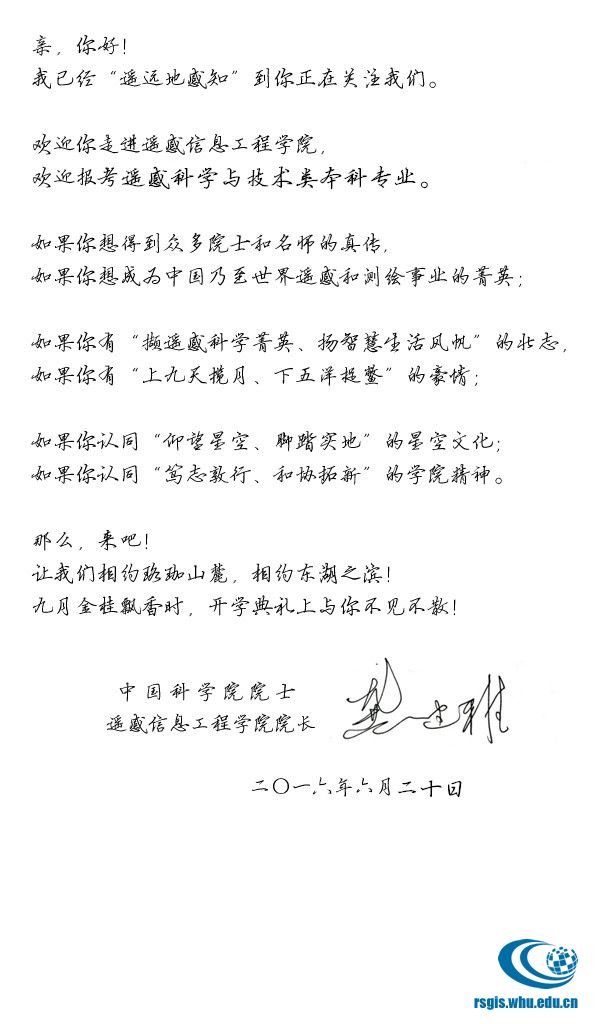 亲，你好！
我已经“遥远地感知”到你正在关注我们。
欢迎你走进遥感信息工程学院，
欢迎报考遥感科学与技术类本科专业。
如果你想得到众多院士和名师的真传，
如果你想成为中国乃至世界遥感和测绘事业的菁英；
如果你有“撷遥感科学菁英、扬智慧生活风帆”的壮志，
如果你有“上九天揽月、下五洋捉鳖”的豪情；
如果你认同“仰望星空、脚踏实地”的星空文化；
如果你认同“笃志敦行、和协拓新”的学院精神。
那么，来吧！
让我们相约珞珈山麓，相约东湖之滨！
九月金桂飘香时，开学典礼上与你不见不散！
中国科学院院士
遥感信息工程学院院长
龚健雅
二〇一六年六月二十日
rsgis.whu.edu.cn